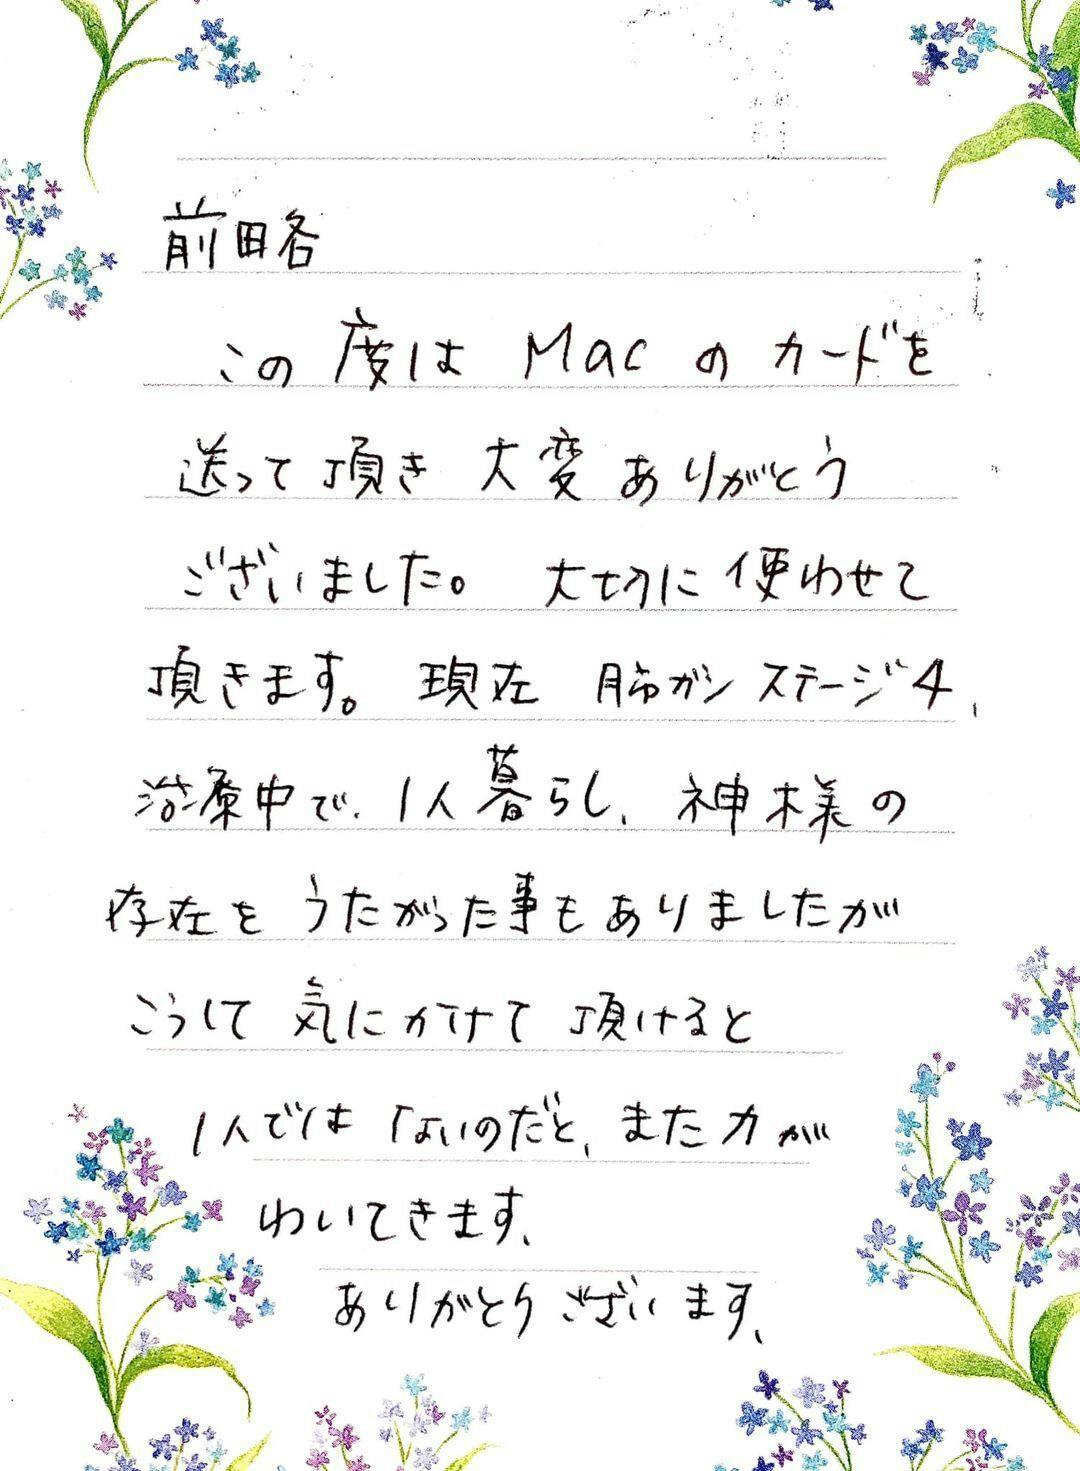 前略
この度は Mac のカードを
送って頂き 大変ありがとう
ございました。 大切に使わせて
頂きます。 現在 肺ガンステージ4、
治療中で、1人暮らし、神様の
存在を うたがった事もありましたが
こうして 気にかけて 頂けると
1人ではないのだと、また力が
わいてきます、
ありがとうございます、